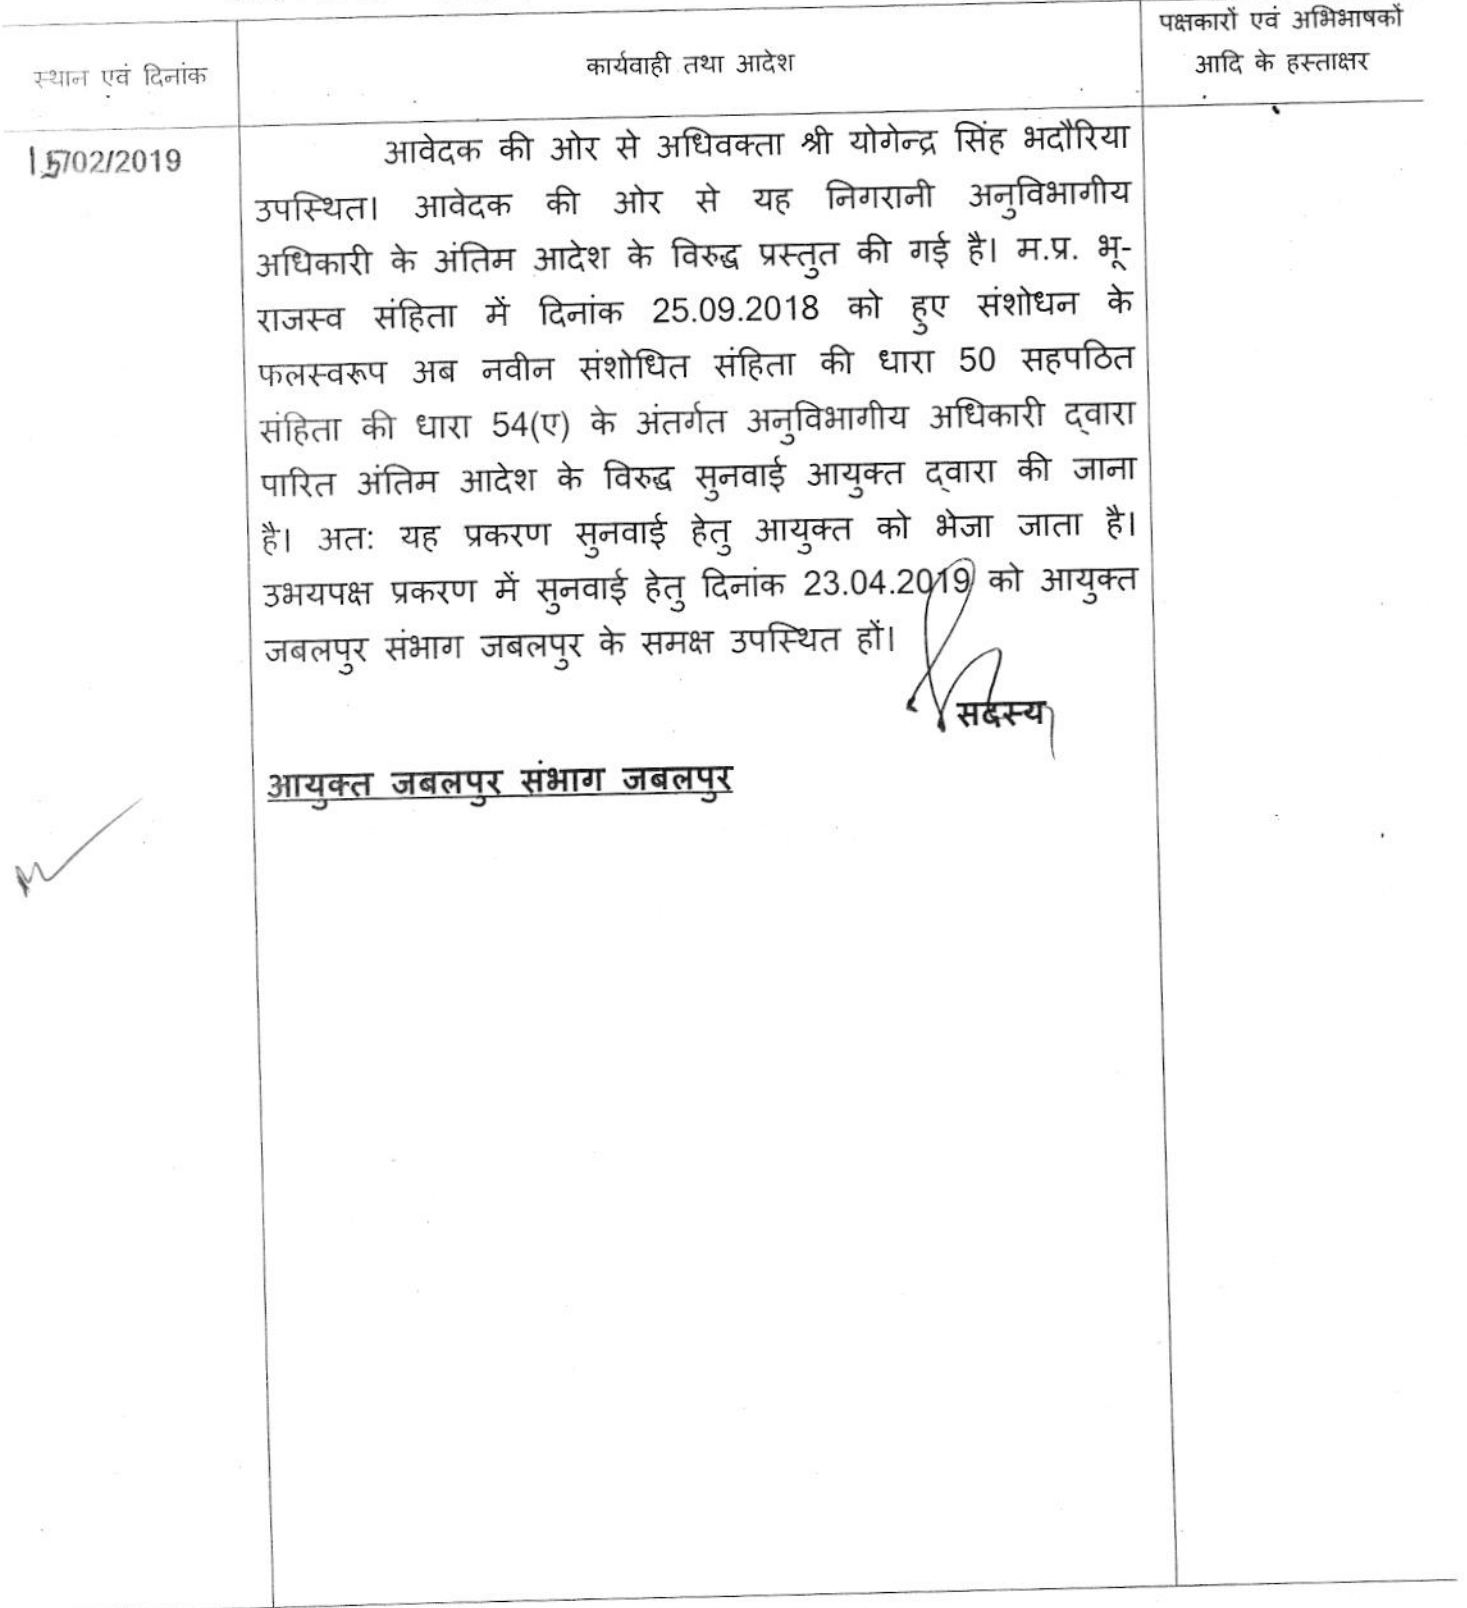 स्थान एवं दिनांक
कार्यवाही तथा आदेश
पक्षकारों एवं अभिभाषकों
आदि के हस्ताक्षर
15/02/2019
आवेदक की ओर से अधिवक्ता श्री योगेन्द्र सिंह भदौरिया
उपस्थित। आवेदक की ओर से यह निगरानी अनुविभागीय
अधिकारी के अंतिम आदेश के विरुद्ध प्रस्तुत की गई है। म.प्र. भू-
राजस्व संहिता में दिनांक 25.09.2018 को हुए संशोधन के
फलस्वरूप अब नवीन संशोधित संहिता की धारा 50 सहपठित
संहिता की धारा 54(ए) के अंतर्गत अनुविभागीय अधिकारी द्वारा
पारित अंतिम आदेश के विरुद्ध सुनवाई आयुक्त द्वारा की जाना
है। अत: यह प्रकरण सुनवाई हेतु आयुक्त को भेजा जाता है।
उभयपक्ष प्रकरण में सुनवाई हेतु दिनांक 23.04.2019 को आयुक्त
जबलपुर संभाग जबलपुर के समक्ष उपस्थित हों।
सदस्य
आयुक्त जबलपुर संभाग जबलपुर